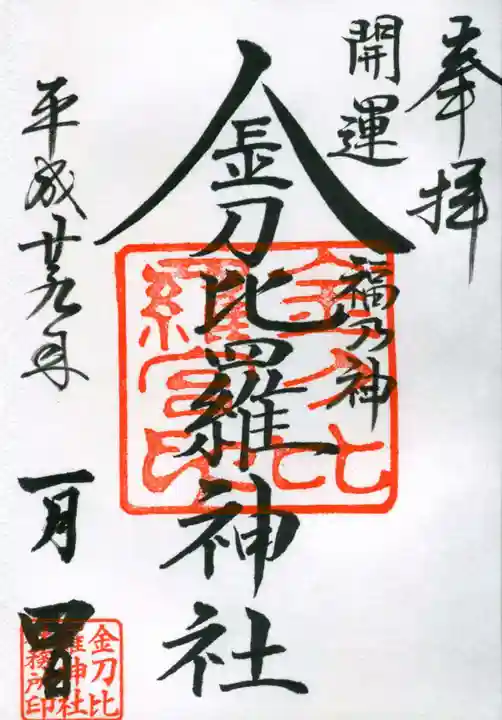 奉拝
開運
福乃神
金刀比羅神社
平成廿九年
一月四日
金刀比
羅宮印
金刀比
羅神社
務所印